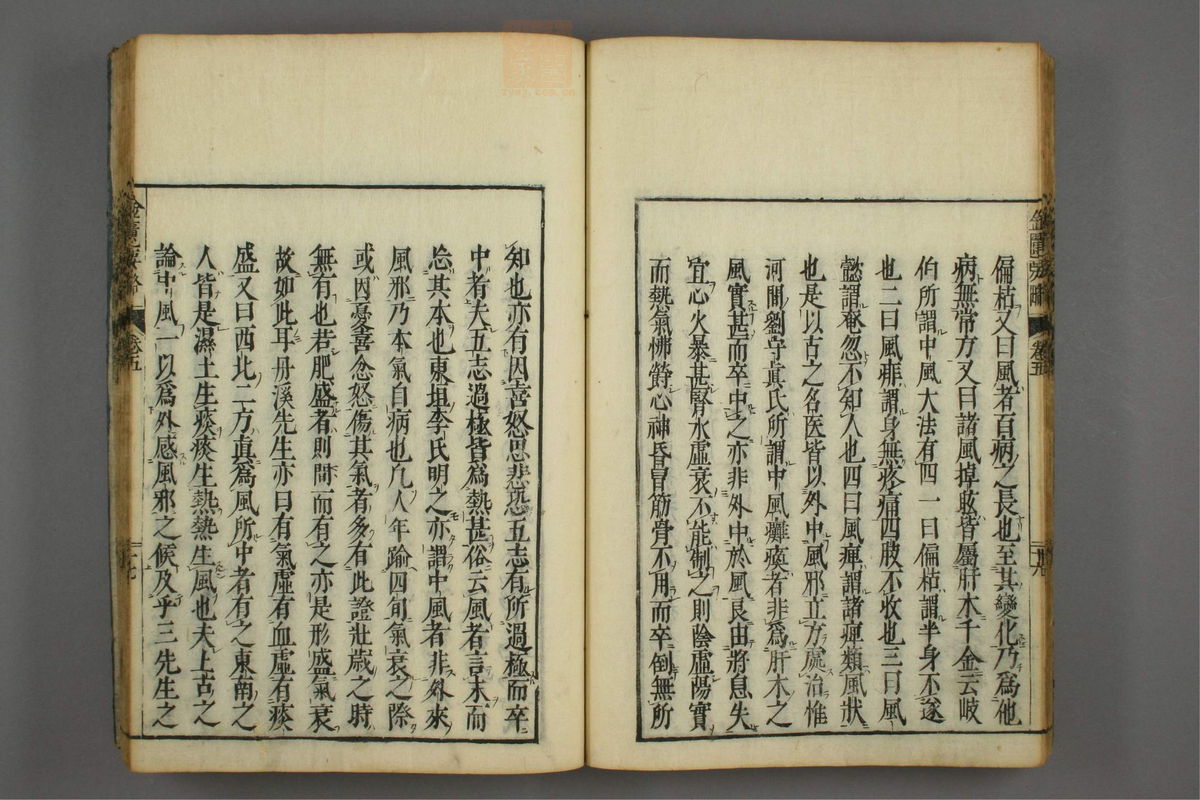 偏枯又曰風者百病之長也至其變化乃爲他
病無常方又曰諸風掉眩皆屬肝木千金云岐
伯所謂中風大法有四一曰偏枯謂半身不遂
也二曰風痱謂身無疼痛四肢不收也三曰風
懿謂奄忽不知人也四曰風痺謂諸痺類風狀
也是以古之名医皆以外中風邪立方處治惟
河間劉守眞氏所謂中風癱瘓者非爲肝木之
風實甚而卒中之亦非外中於風良由將息失
宜心火暴甚腎水虛衰不能制之則陰虛陽實
而熱氣怫欝心神昏冒筋骨不用而卒倒無所
知也亦有因喜怒思悲恐五志有所過極而卒
中者夫五志過極皆爲熱甚俗云風者言末而
忘其本也東垣李氏明之亦謂中風者非外來
風邪乃本氣自病也凡人年踰四旬氣衰之際
或因憂喜忿怒傷其氣者多有此證壯歲之時
無有也若肥盛者則間而有之亦是形盛氣衰
故如此耳丹溪先生亦曰有氣虛有血虛有痰
盛又曰西北二方眞爲風所中者有之東南之
人皆是濕土生痰痰生熱熱生風也夫上古之
論中風一以爲外感風邪之候及乎三先生之
卷五
卷五